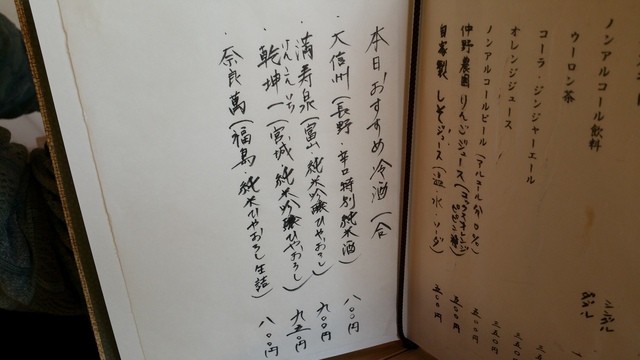 ノンアルコール飲料
ウーロン茶
コーラ・ジンジャーエール
オレンジジュース
ノンアルコールビール(アルコール分0%)
仲野農園りんごジュース
五〇〇円
自家製 しそジュース(温・水・ソーダ)
五〇〇円
本日おすすめ冷酒 一合
・大信州(長野・辛口特別純米酒) 八〇〇円
・満寿泉(富山・純米吟醸ひやおろし) 九〇〇円
けんこんいち
・乾坤一(宮城・純米吟醸ひやおろし) 九五〇円
・奈良萬(福島・純米ひやおろし生詰) 八〇〇円